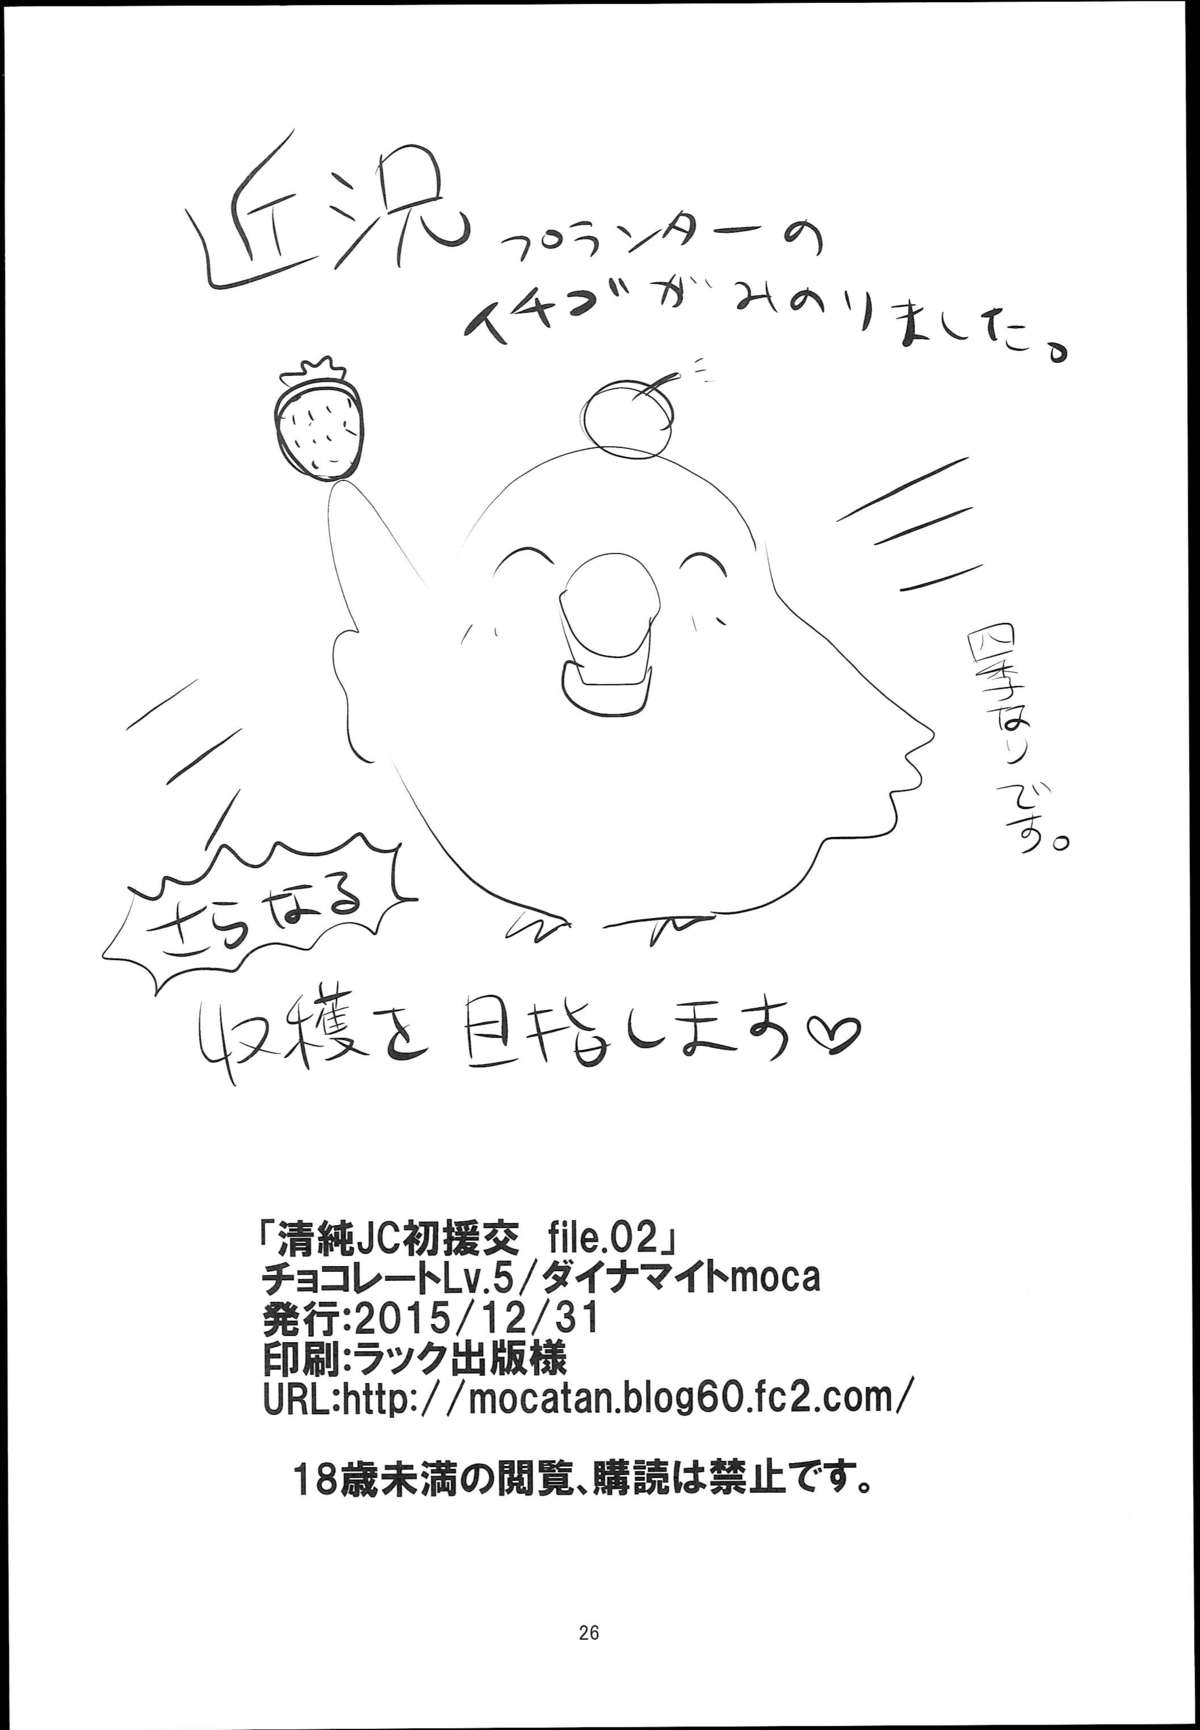 近況 プランターの
イチゴがみのりました。
四季なりです。
さらなる
収穫を目指します♡
「清純JC初援交　file.02」
チョコレートLv.5/ダイナマイトmoca
発行:2015/12/31
印刷:ラック出版様
URL:http://mocatan.blog60.fc2.com/
18歳未満の閲覧、購読は禁止です。
26